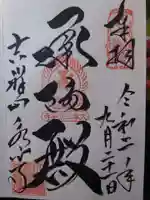 奉拝
令和二年
九月二十日
承陽殿
吉祥山永平寺